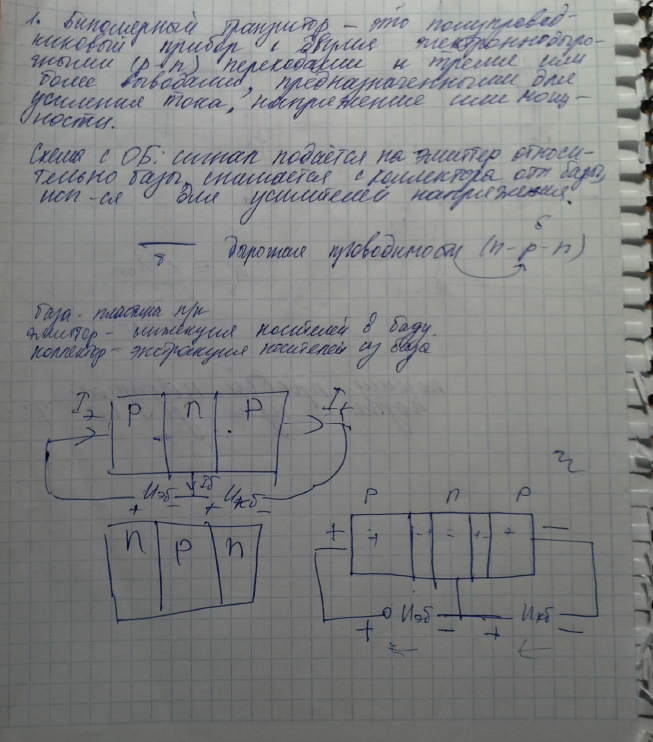 1. Биполярный транзистор – это полупровод-
никовый прибор с двумя электроннодыро-
чными (p-n) переходами и тремя или
более выводами, предназначенными для
усиления тока, напряжение или мощ-
ности.
Схема с ОБ: сигнал подаётся на эмиттер относи-
тельно базы, снимается с коллектора отн. базы,
исп-ся для усилителей напряжения.
б
б дырочная проводимость (n-p-n)
база - пластина п/п
эмиттер - инжекция носителей в базу.
коллектор - экстракция носителей из база
Iэ P n P Iк
Iб
Uэб Uкб
+ - + -
n p n
P n P
+ + - + -
Uэб Uкб
+ - + -